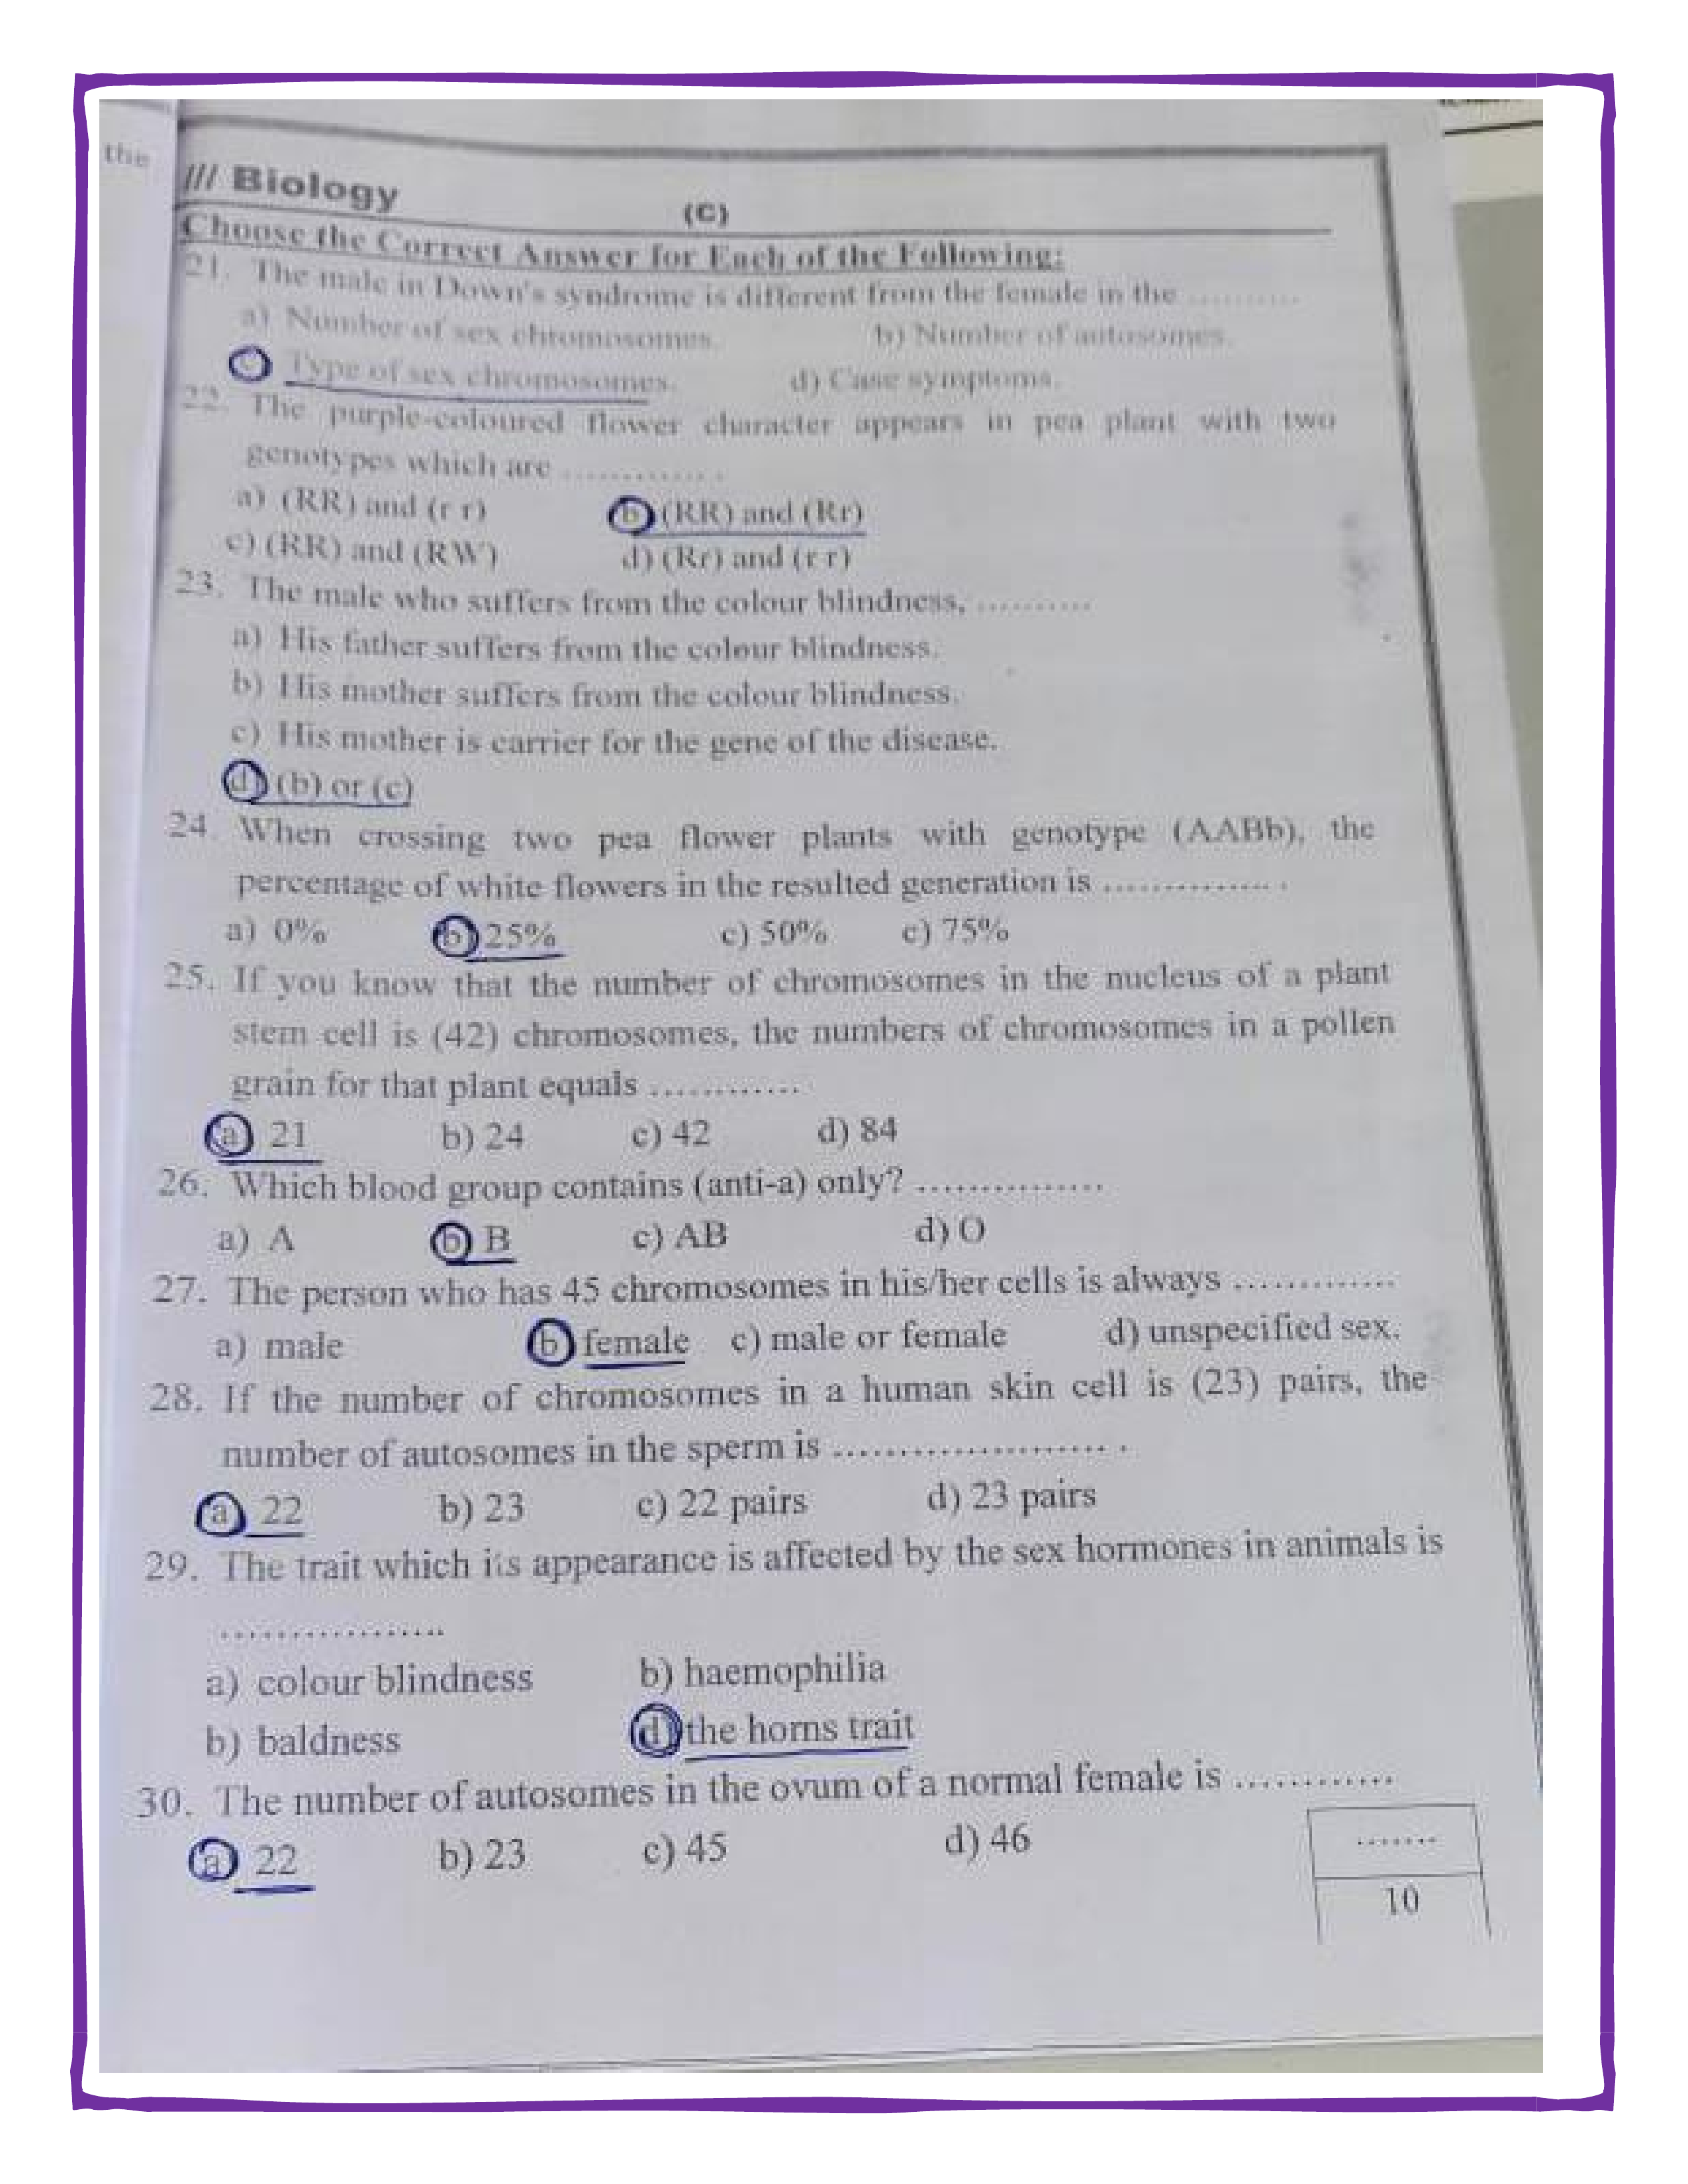 the
/// Biology
(C)
Choose the Correct Answer for Each of the Following:
21. The male in Down's syndrome is different from the female in the ..........
a) Number of sex chromosomes. b) Number of autosomes.
c) Type of sex chromosomes. d) Case symptoms.
22. The purple-coloured flower character appears in pea plant with two
genotypes which are ............. .
a) (RR) and (r r) b) (RR) and (Rr)
c) (RR) and (RW) d) (Rr) and (r r)
23. The male who suffers from the colour blindness, ..........
a) His father suffers from the colour blindness.
b) His mother suffers from the colour blindness.
c) His mother is carrier for the gene of the disease.
d) (b) or (c)
24. When crossing two pea flower plants with genotype (AABb), the
percentage of white flowers in the resulted generation is ............... .
a) 0% b) 25% c) 50% c) 75%
25. If you know that the number of chromosomes in the nucleus of a plant
stem cell is (42) chromosomes, the numbers of chromosomes in a pollen
grain for that plant equals ............
a) 21 b) 24 c) 42 d) 84
26. Which blood group contains (anti-a) only? ...............
a) A b) B c) AB d) O
27. The person who has 45 chromosomes in his/her cells is always .............
a) male b) female c) male or female d) unspecified sex.
28. If the number of chromosomes in a human skin cell is (23) pairs, the
number of autosomes in the sperm is ...................... .
a) 22 b) 23 c) 22 pairs d) 23 pairs
29. The trait which its appearance is affected by the sex hormones in animals is
..................
a) colour blindness b) haemophilia
b) baldness d) the horns trait
30. The number of autosomes in the ovum of a normal female is ............
a) 22 b) 23 c) 45 d) 46
.......
10